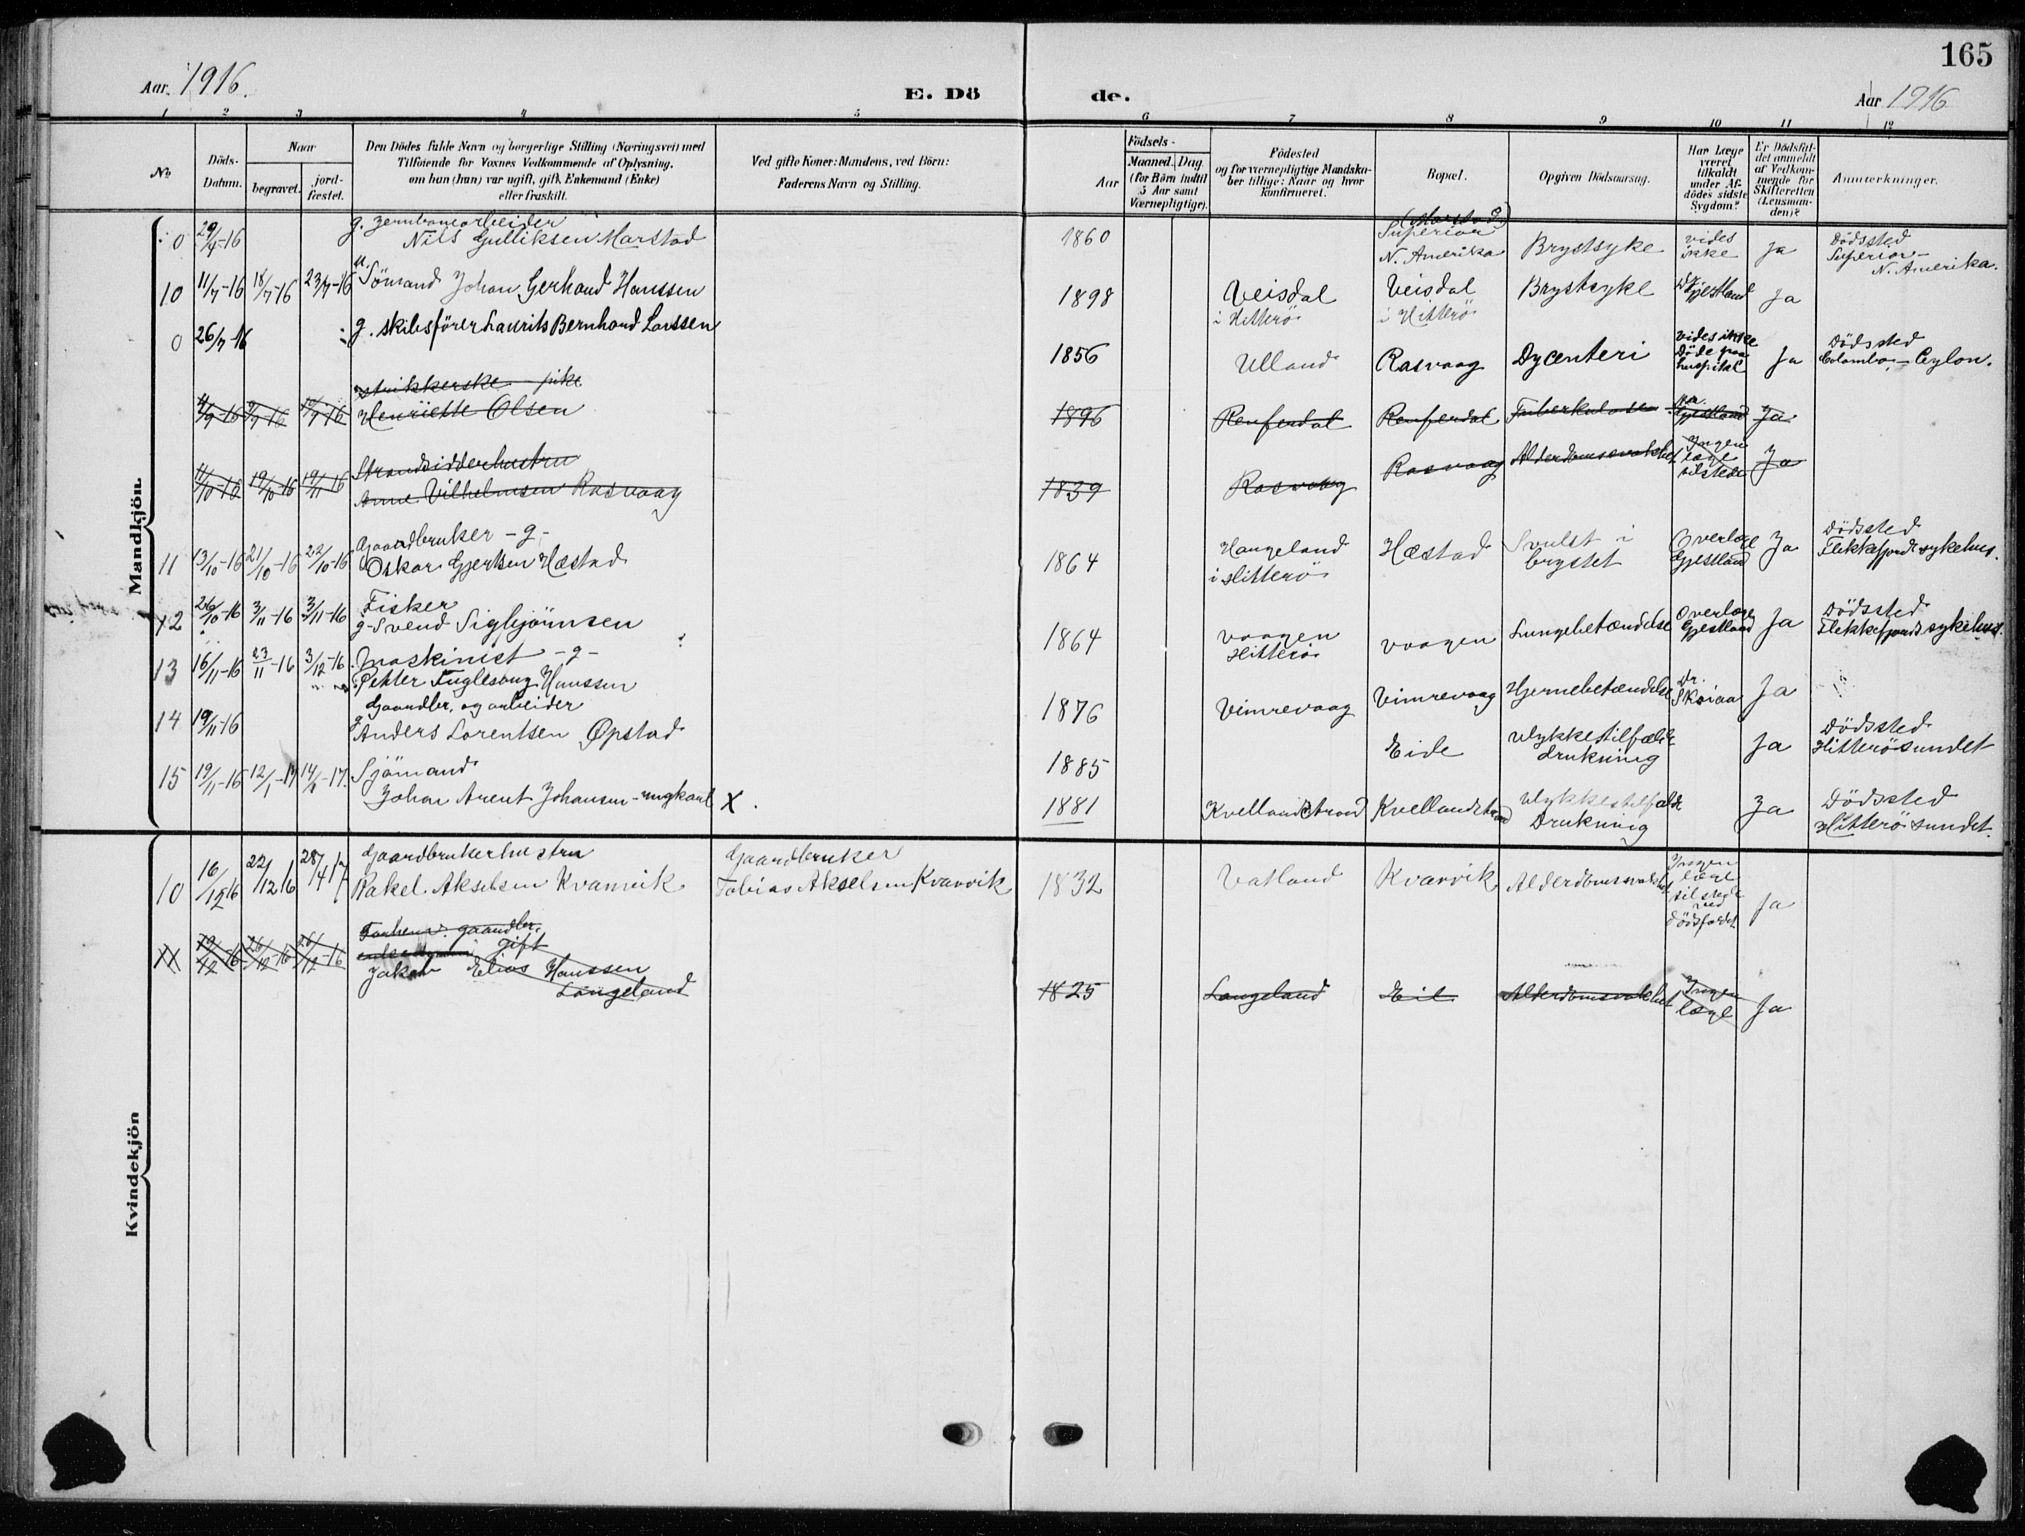 165
Aar. 1916.
E. Dö
de.
Aar 1916
1 2 3 4 5 6 7 8 9 10 11 12
No
Döds-
Datum.
Naar
begravet.
jord-
fæstet.
Den Dödes fulde Navn og borgerlige Stilling (Næringsvei) med
Tilföiende for Voxnes Vedkommende af Oplysning,
om han (hun) var ugift, gift, Enkemand (Enke)
eller fraskilt.
Ved gifte Koner: Mandens, ved Börn:
Faderens Navn og Stilling.
Aar
Födsels-
Maaned. Dag.
(for Börn indtil
5 Aar samt
Værnepligtige).
Födested
og for værnepligtige Mandska-
ber tillige: Naar og hvor
konfirmeret.
Bopæl.
Opgiven Dödsaarsag.
Har Læge
været
tilkaldt
under Af-
dödes sidste
Sygdom?
Er Dödsfal-
det anmeldt
af Vedkom-
mende for
Skifteretten
(Lensman-
den)?
Anmærkninger.
Mandkjön.
0 29/4-16 g. Jernbanearbeider
Nils Gulliksen Marstad
1860 (Marstad)
Superior
N. Amerika Brystsyke vides
ikke Ja Dödssted
Superior-
N. Amerika.
10 11/7-16 18/7-16 23/7-16 u. Sömand Johan Gerhard Hanssen
1898 Veisdal
i Hitterö Veisdal
i Hitterö Brystsyke Dr.
Gjestland Ja
0 26/7-16 g. skibsförer Laurits Bernhard Larssen
1856 Ulland Rasvaag Dycenteri vides ikke
Döde paa
hospital Ja Dödssted
Colombo, - Ceylon.
strikkerske pike
Henriette Olsen
1896 Renferdal Renferdal Tuberkulose Gjestland Ja
Strandsidderhustru
Anne Vilhelmsen Rasvaag
1839 Rasvaag Rasvaag Alderdomssvakhet Ingen
læge
tilstede Ja
11 13/10-16 21/10-16 22/10-16 Gaardbruker -g-
Oskar Gjertsen Hæstad
1864 Haugeland
i Hitterö Hæstad Svulst i
brystet Overlæge
Gjestland Ja Dödssted
Flekkefjords sykehus.
12 26/10-16 3/11-16 3/11-16 Fisker
g- Svend Sigbjörnsen
1864 Vaagen
Hitterö Vaagen Lungebetændelse Overlæge
Gjestland Ja Dödssted
Flekkefjords sykehus.
13 16/11-16 23/11-16 3/12-16 Maskinist -g-
Petter Fuglesang Hanssen
1876 Vimrevaag Vimrevaag Hjernebetændelse Dr. Ja
14 19/11-16 Gaardbr. og arbeider
g Anders Lorentsen Øpstad
1885 Eide Ulykkestilfælde
drukning Ja Dödssted
Hitterösundet
15 19/11-16 12/1-17 Sjömand
Johan Arent Johansen - ungkarl X.
1881 Kvellandstrand Kvellandstrand Ulykkestilfælde
Drukning Ja Dödssted
Hitterösundet.
Kvindekjön
10 16/12 16 22/12 16 28/4 17 Gaardbrukerhustru
Rakel Akselsen Kvanvik
Gaardbruker
Tobias Akselsen Kvanvik
1832 Vatland Kvanvik Alderdomssvakhet Ingen
læge
tilstede
ved
dödsfaldet Ja
Forhenv. gaardbr.
gift
Jakob Elias Hanssen
Langeland
1825 Langeland Eie Alderdomssvakhet Ingen
læge Ja